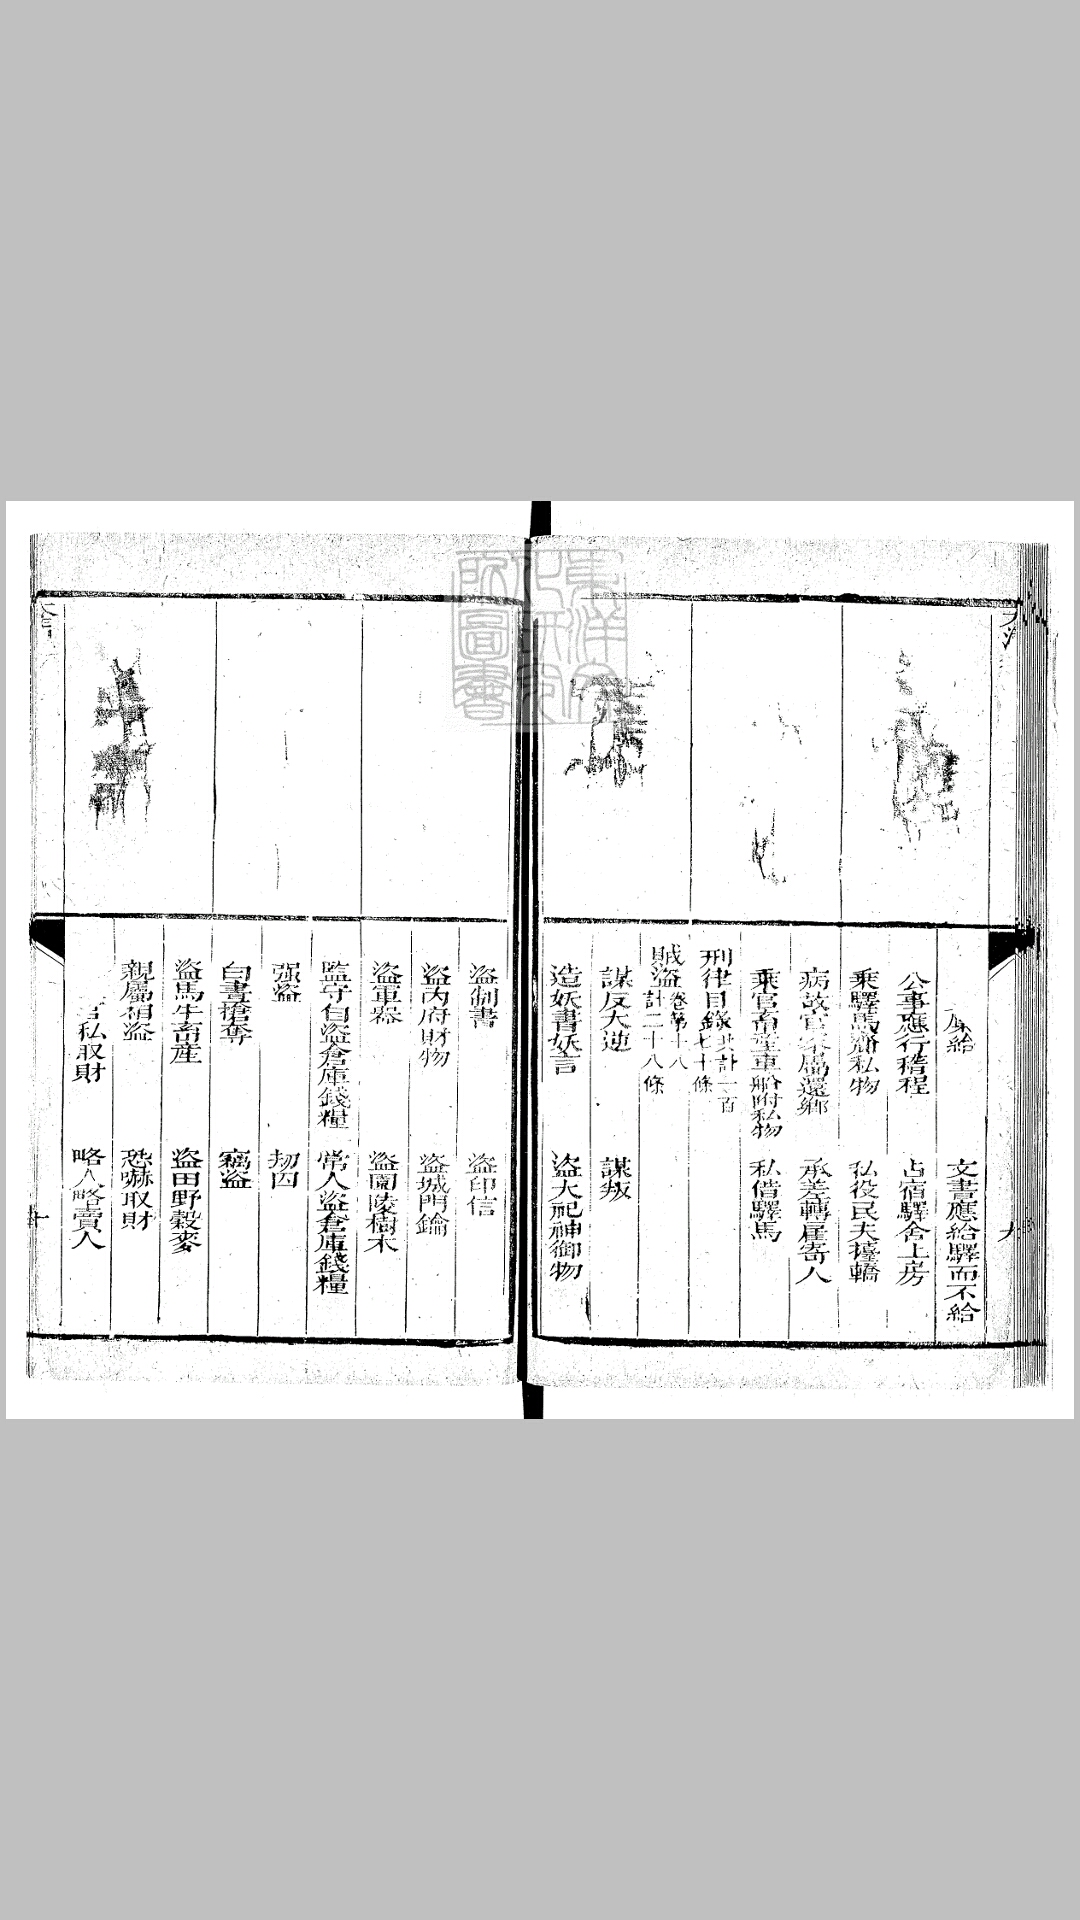 廩給 文書應給驛而不給
公事應行稽程 占宿驛舍上房
乘驛馬齎私物 私役民夫擡轎
病故官家屬還鄉 承差轉雇寄人
乘官畜產車船附私物 私借驛馬
刑律目錄共計一百七十條
賊盜卷第十八計二十八條
謀反大逆 謀叛
造妖書妖言 盜大祀神御物
九
盜制書 盜印信
盜內府財物 盜城門鑰
盜軍器 盜園陵樹木
監守自盜倉庫錢糧 常人盜倉庫錢糧
强盜 劫囚
白晝搶奪 竊盜
盜馬牛畜產 盜田野穀麥
親屬相盜 恐嚇取財
官私取財 略人略賣人
十